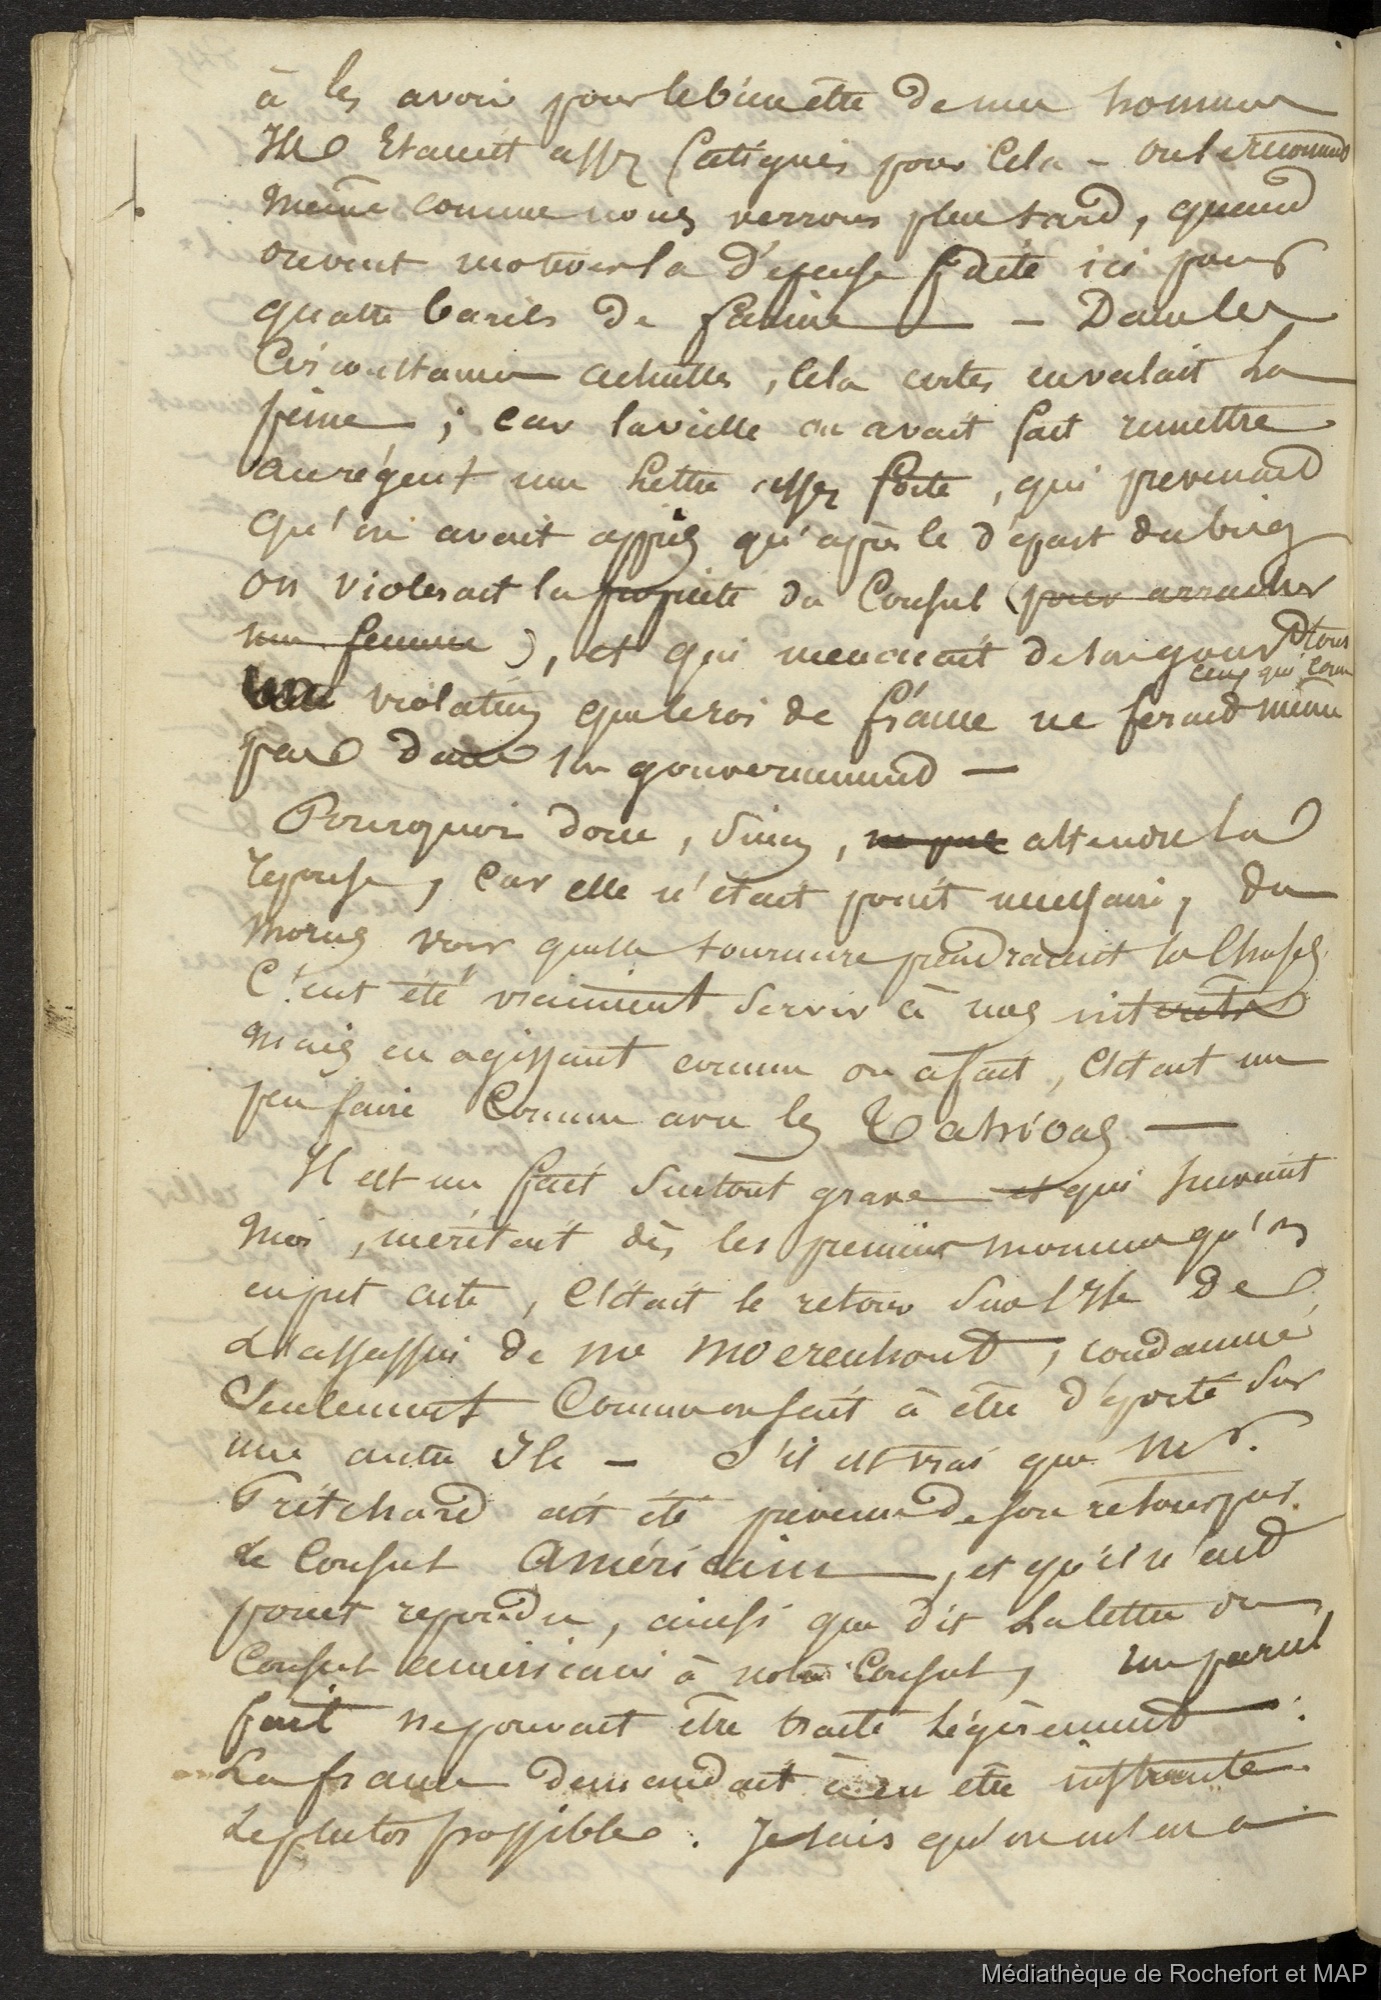 à les avoir pour le bien être de nos hommes
Ils Etaient assez fatigués pour Cela - on le reconnut
même comme nous verrons plus tard, quand
on veut motiver la dépense faite ici pour
quatre barils de farine — - Dans les
Circonstances actuelles, Cela certes en valait La
peine ; Car la veille on avait fait remettre
au régent une Lettre assez forte, qui prevenait
qu'on avait appris qu'après le départ du brig
on violerait la propriété du Consul (pour arracher
sa femme), et qui menacait de la rigueur tous
ceux qui comm
violation que le roi de france ne ferait même
pas dans son gouvernement —
Pourquoi donc, Sinon, ne pas attendre La
reponse, Car elle n'était point necessaire, du
moins voir quelle tournure prendraient les Choses
C'eut été vraiment Servir à nos intérêts
mais en agissant comme on a fait, C'était un
peu faire Comme avec les Tahivas —
Il est un fait Surtout grave et qui suivant
moi, méritait dès les premiers momens qu'on
en prit acte, C'était le retour Sur l'Isle de
L'assassin de Mr Moerenhout, condamné
Seulement Comme on sait à être déporté Sur
une autre Ile - S'il est vrai que Mr.
Pritchard ait été prevenu de son retour par
Le Consul Américain —, et qu'il n'eut
point repondu, ainsi que dit La lettre du
Consul américain à notre Consul, un pareil
fait ne pouvait être traité Légèrement :
La france demandait à en être instruite
Le plutot possible. Je sais qu'on